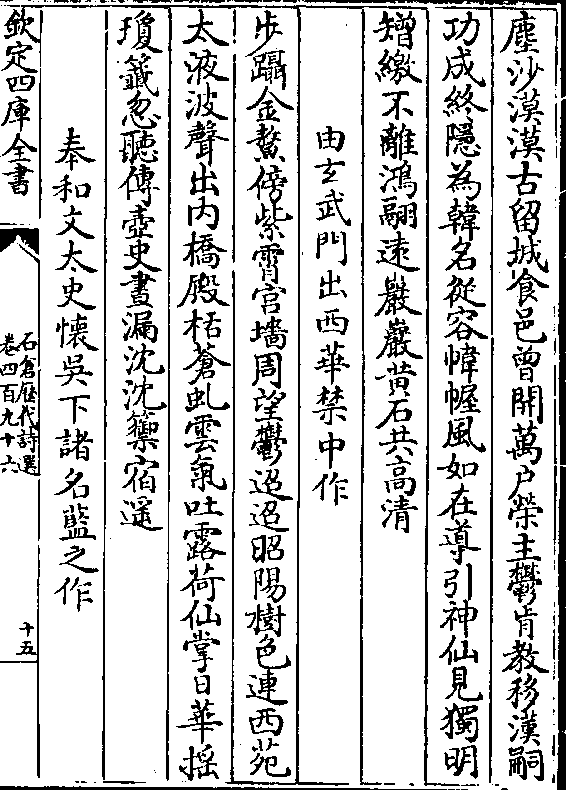 塵沙漠漠古留城食邑曾開萬户榮主鬱肯教移漢嗣
功成終隱為韓名從容幃幄風如在導引神仙見獨明
矰繳不離鴻翮逺巖巖黄石共高清
由玄武門出西華禁中作
步躡金鰲傍紫霄宫墻周望鬱迢迢昭陽樹色連西苑
太液波聲出内橋殿栝蒼虬雲氣吐露荷仙掌日華揺
瓊籤忽聽傳壺史晝漏沈沈籞宿遥
奉和文太史懷吳下諸名藍之作
欽定四庫全書
石倉歴代詩選
卷四百九十六
十五